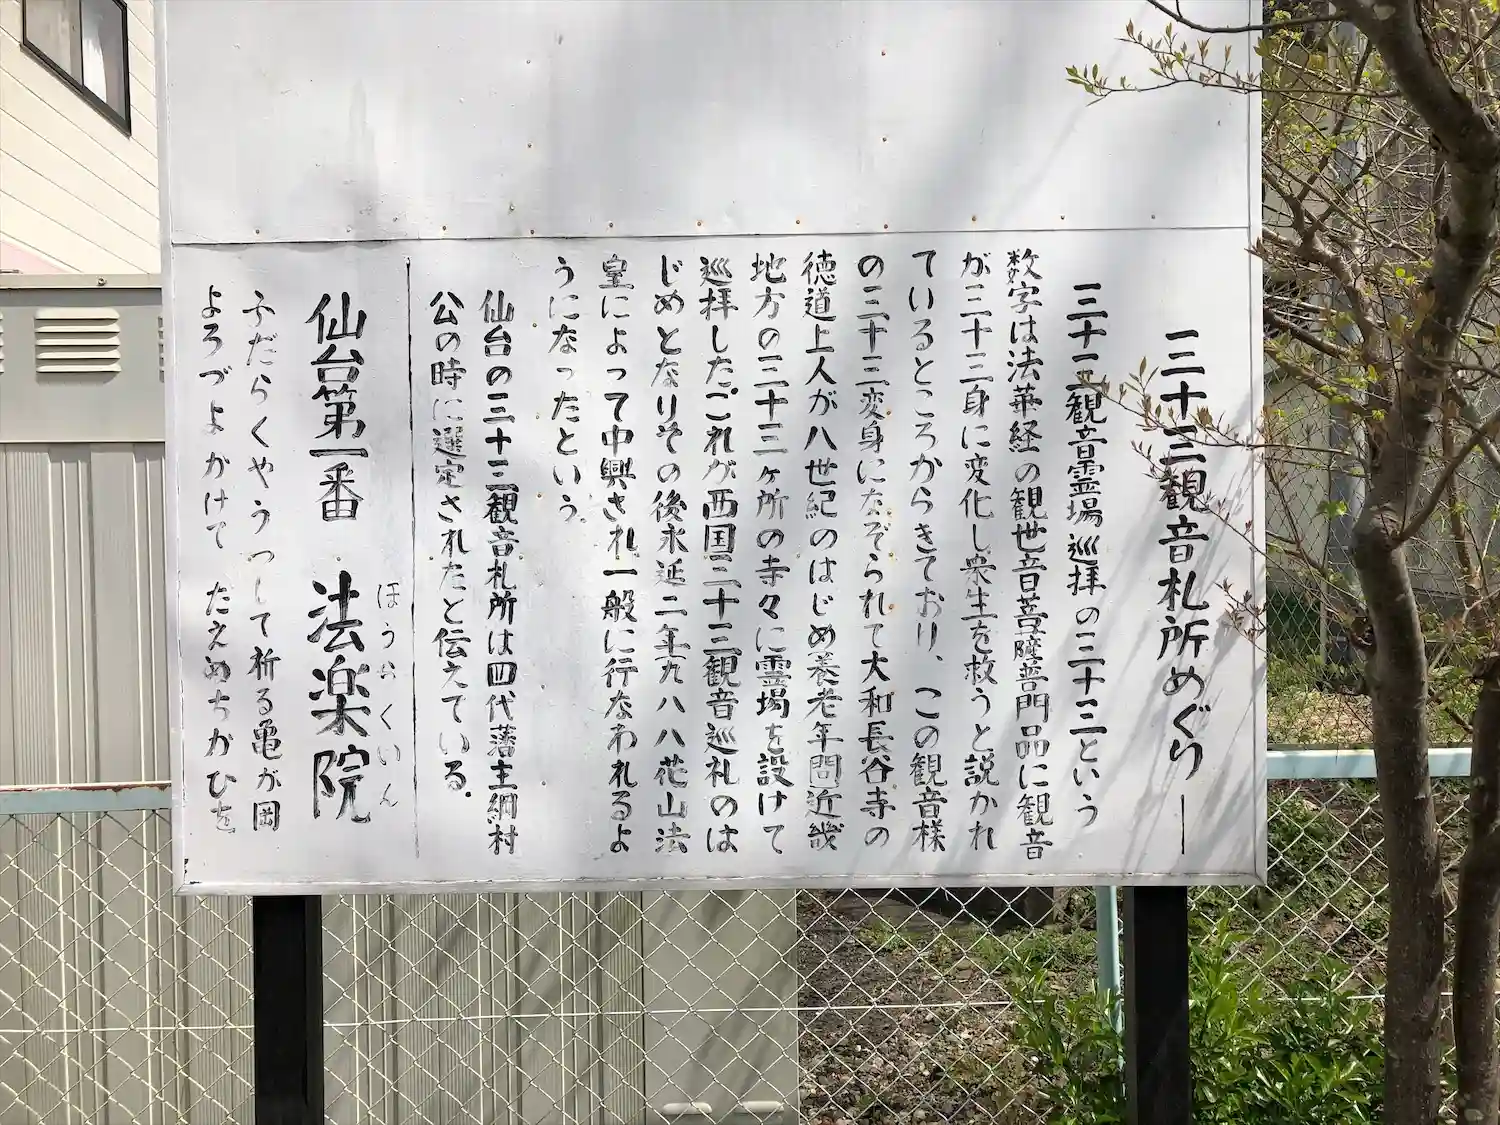 三十三観音札所めぐり ―
三十三観音霊場巡拝の三十三という
数字は法華経の観世音菩薩普門品に観音
が三十三身に変化し衆生を救うと説かれ
ているところからきており、この観音様
の三十三変身になぞられて大和長谷寺の
徳道上人が八世紀のはじめ養老年間近畿
地方の三十三ヶ所の寺々に霊場を設けて
巡拝した。これが西国三十三観音巡礼のは
じめとなりその後永延二年九八八花山法
皇によって中興され一般に行なわれるよ
うになったという。
仙台の三十三観音札所は四代藩主綱村
公の時に選定されたと伝えている。
ほうらくいん
仙台第一番 法楽院
ふだらくやうつして祈る亀が岡
よろづよかけて たえぬちかひを